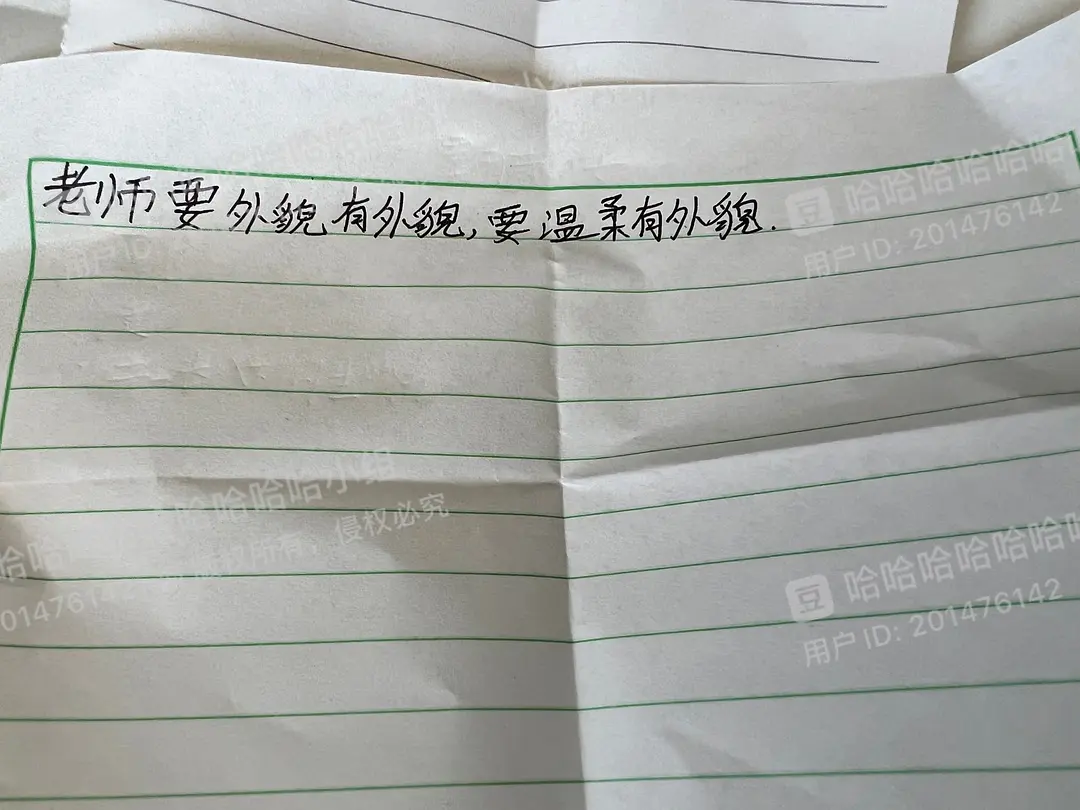 老师要外貌有外貌,要温柔有外貌.
豆 哈哈哈哈哈哈
用户 ID: 201476142
哈哈哈哈小组
版权所有，侵权必究
豆 哈哈哈哈哈哈哈
用户 ID: 201476142